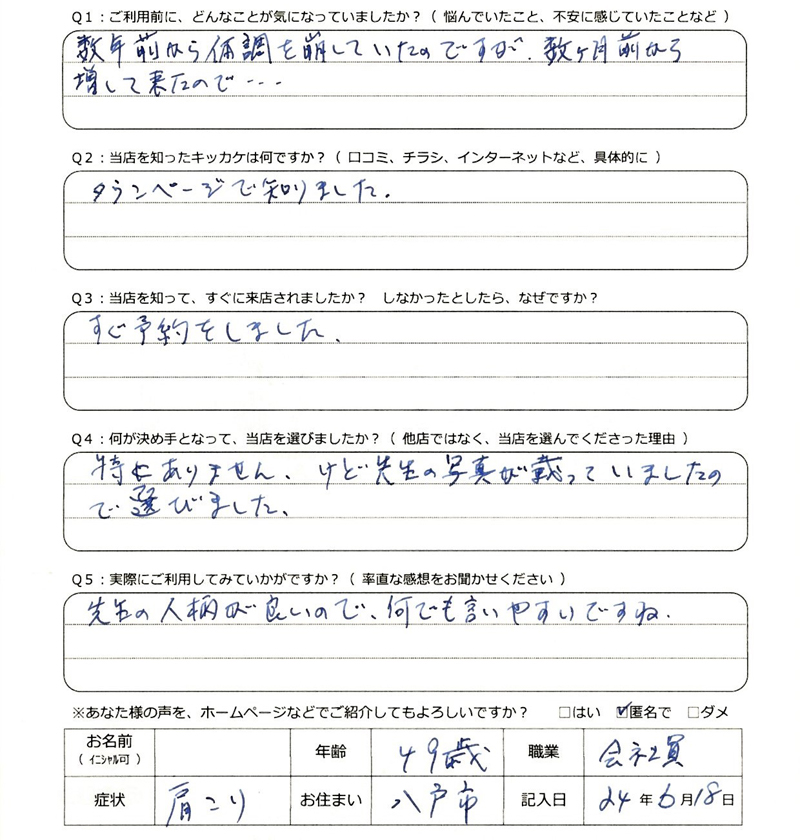 Q1：ご利用前に、どんなことが気になっていましたか？（ 悩んでいたこと、不安に感じていたことなど ）
数年前から体調を崩していたのですが、数ヶ月前から
増して来たので・・・
Q2：当店を知ったキッカケは何ですか？（ 口コミ、チラシ、インターネットなど、具体的に ）
タウンページで知りました。
Q3：当店を知って、すぐに来店されましたか？　しなかったとしたら、なぜですか？
すぐ予約をしました、
Q4：何が決め手となって、当店を選びましたか？（ 他店ではなく、当店を選んでくださった理由 ）
特にありません、けど先生の写真が載っていましたの
で選びました、
Q5：実際にご利用してみていかがですか？（ 率直な感想をお聞かせください ）
先生の人柄が良いので、何でも言いやすいですね.
※あなた様の声を、ホームページなどでご紹介してもよろしいですか？　□はい　☑匿名で　□ダメ
お名前　年齢　49歳　職業　会社員
（ イニシャル可 ）
症状　肩こり　お住まい　八戸市　記入日　24年6月18日